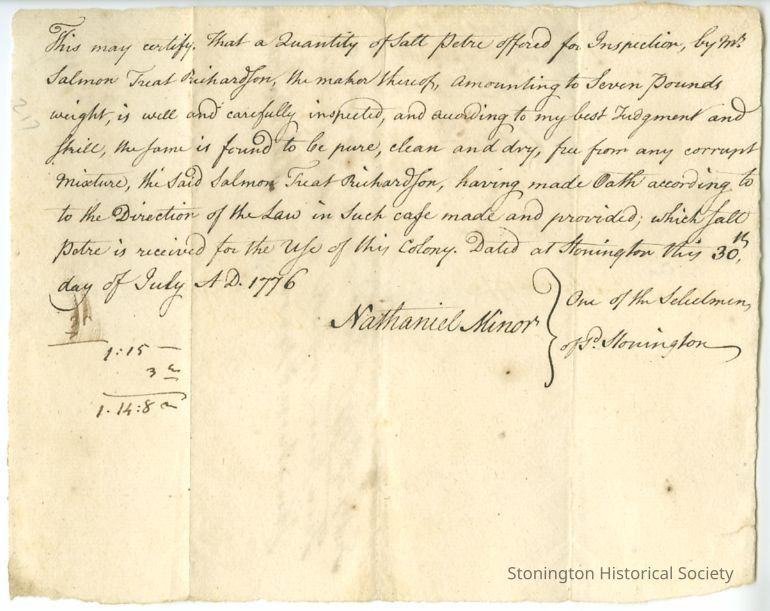 This may certify, that a Quantity of Salt Petre offered for Inspection, by Mr
Salmon Treat Richardson, the maker thereof, amounting to Seven Pounds
weight, is well and carefully inspected, and according to my best Judgment and
Skill, the same is found to be pure, clean and dry, free from any corrupt
mixture, the Said Salmon Treat Richardson, having made Oath according to
to the Direction of the Law in Such case made and provided; which Salt
Petre is received for the Use of this Colony. Dated at Stonington this 30th,
day of July A D. 1776
Nathaniel Minor
One of the Selectmen
of Sd. Stonington
217
1:15 —
3
1.14:8
Stonington Historical Society